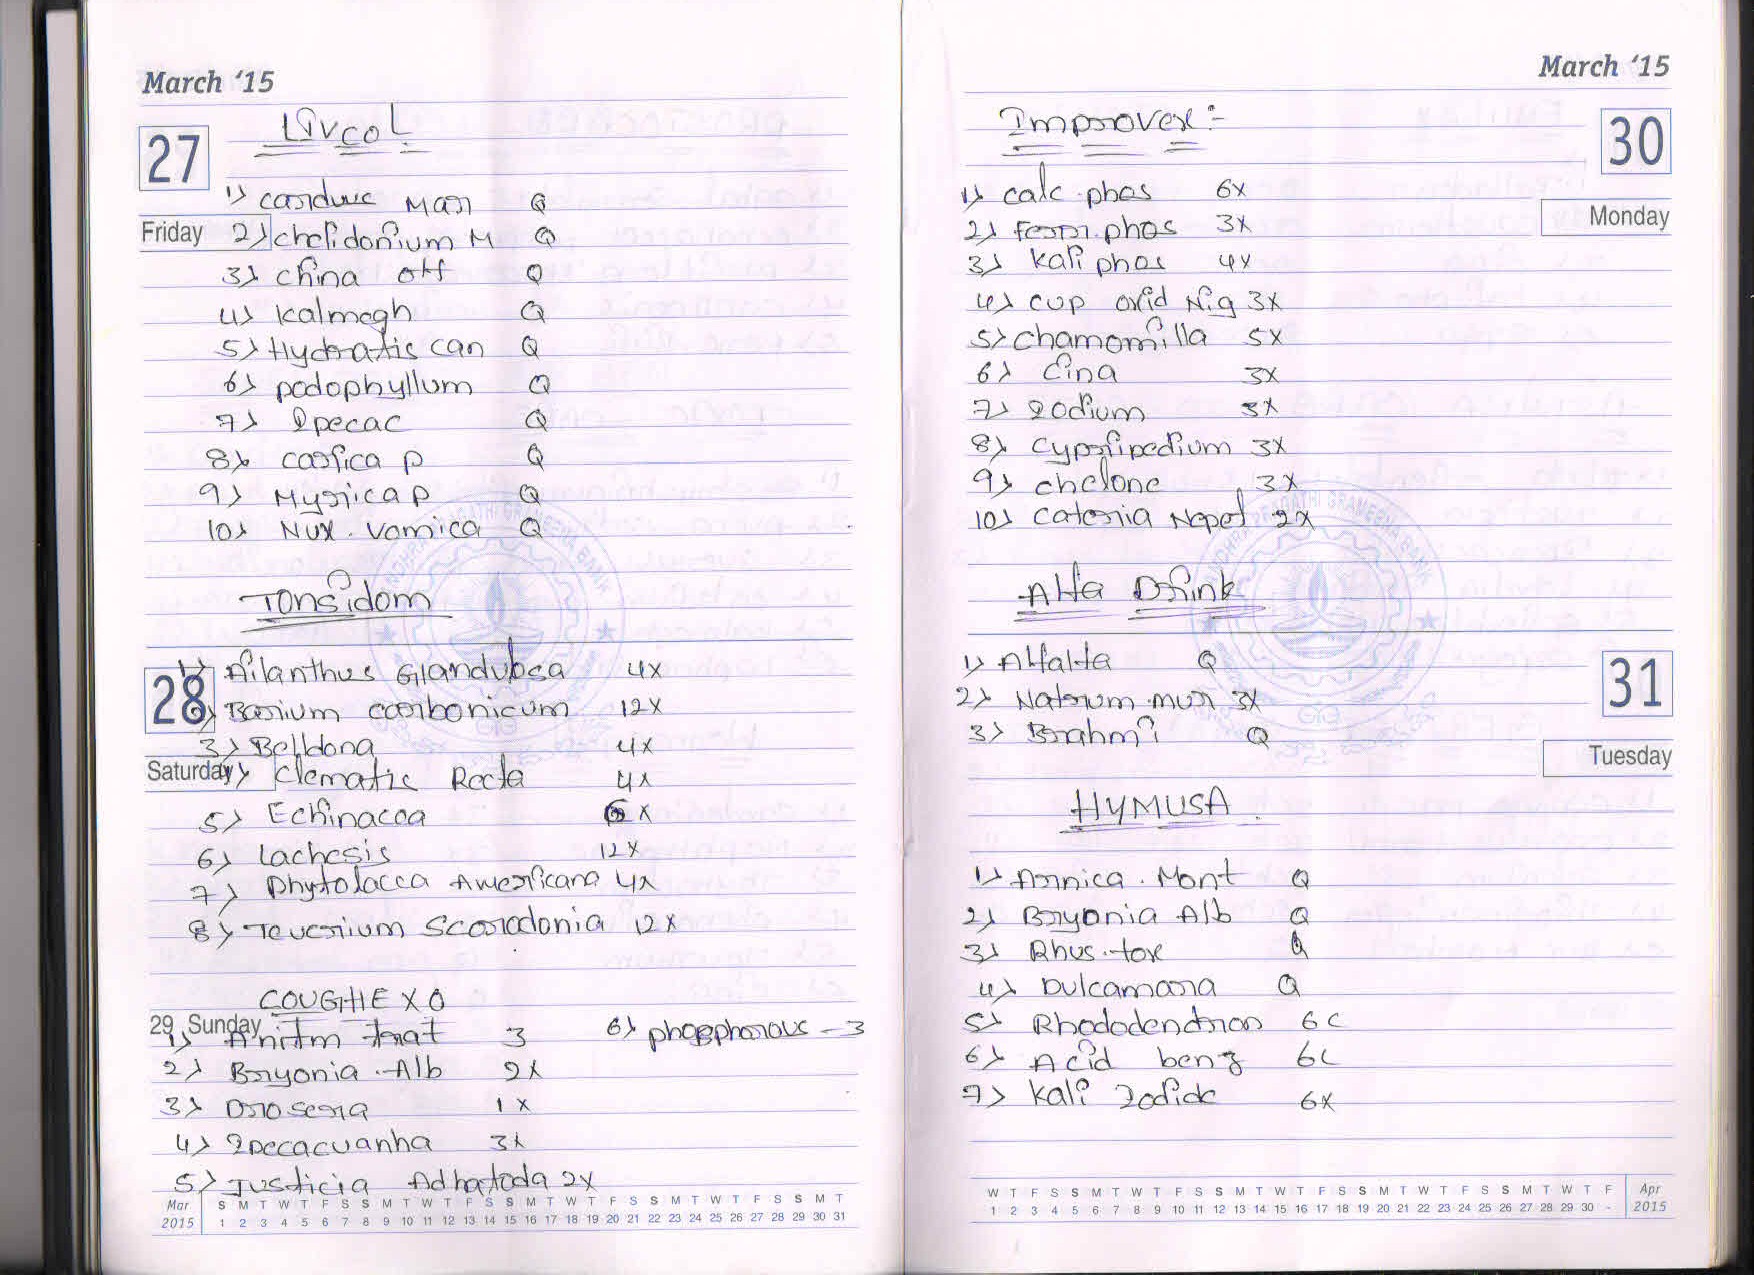 March '15
27
Livcol
1) Carduuc Mar Q
Friday
2) chelidonium M Q
3) china off Q
4) Kalmegh Q
5) Hydratis can Q
6) podophyllum Q
7) Ipecac Q
8) carica p Q
9) Myrica p Q
10) Nux. vomica Q
Tonsidom
28
1) Ailanthus Glandulosa 4x
2) Barium carbonicum 12x
3) Belldona 4x
Saturday
4) Clematic Recta 4x
5) Echinacea 6x
6) Lachesis 12x
7) Phytolacca Americana 4x
8) Teucrium Scorodonia 12x
COUGHEX O
29 Sunday
1) Anitm tart 3
6) phosphorous - 3
2) Bryonia. Alb 2x
3) Drosera 1x
4) Ipecacuanha 3x
5) Justicia Adhatoda 2x
Mar S M T W T F S S M T W T F S S M T W T F S S M T W T F S S M T
2015 1 2 3 4 5 6 7 8 9 10 11 12 13 14 15 16 17 18 19 20 21 22 23 24 25 26 27 28 29 30 31
March '15
30
Improvex :-
1) calc. phos 6x
Monday
2) Ferr. phos 3x
3) Kali phos 4x
4) cup oxid Nig 3x
5) chamomilla 5x
6) Cina 3x
7) Iodium 3x
8) Cypripedium 3x
9) chelone 3x
10) Cateria Nepet 2x
ANDHRA PRAGATHI GRAMEENA BANK
Alfa Drink
31
1) Alfalfa Q
2) Natrum. mur 3x
3) Brahmi Q
Tuesday
HYMUSA
1) Arnica. Mont Q
2) Bryonia Alb Q
3) Rhus. tox Q
4) Dulcamara Q
5) Rhododendron 6c
6) Acid benz 6c
7) Kali Iodide 6x
W T F S S M T W T F S S M T W T F S S M T W T F S S M T W T F Apr
1 2 3 4 5 6 7 8 9 10 11 12 13 14 15 16 17 18 19 20 21 22 23 24 25 26 27 28 29 30 - 2015